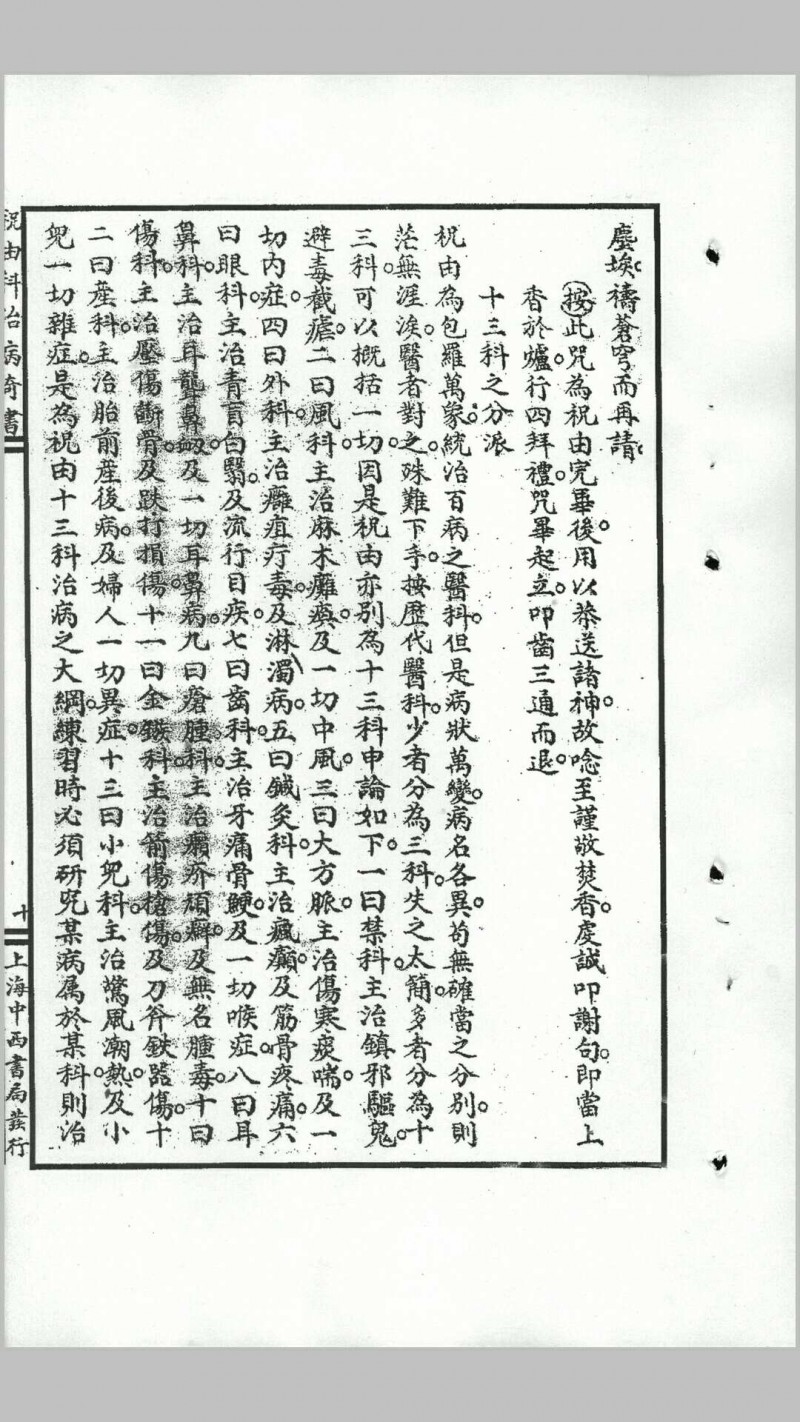 塵埃。禱蒼穹而再請。
(按)此咒為祝由完畢後。用以恭送諸神。故唸至謹敬焚香。虔誠叩謝句。即當上
香於爐。行四拜禮。咒畢起立。叩齒三通而退。
十三科之分派
祝由為包羅萬象。統治百病之醫科。但是病狀萬變。病名各異。苟無確當之分別。則
茫無涯涘。醫者對之。殊難下手。按歷代醫科。少者分為三科。失之太簡。多者分為十
三科。可以概括一切。因是祝由亦別為十三科。申論如下。一曰禁科。主治鎮邪驅鬼。
避毒截瘧。二曰風科。主治麻木癱瘓。及一切中風。三曰大方脈。主治傷寒痰喘。及一
切內症。四曰外科。主治癰疽疔毒。及淋濁病。五曰鍼灸科。主治瘋癲。及筋骨疼痛。六
曰眼科。主治青盲白翳。及流行目疾。七曰齒科。主治牙痛骨鯁。及一切喉症。八曰耳
鼻科。主治耳聾鼻衂。及一切耳鼻病。九曰瘡腫科。主治癩疥頑癬。及無名腫毒。十曰
傷科。主治壓傷斷骨。及跌打損傷。十一曰金鏃科。主治箭傷槍傷。及刀斧鉄器傷。十
二曰產科。主治胎前產後病。及婦人一切異症。十三曰小兒科。主治驚風潮熱。及小
兒一切雜症。是為祝由十三科治病之大綱。練習時必須研究某病属於某科。則治
祝由科治病奇書
十
上海中西書局發行